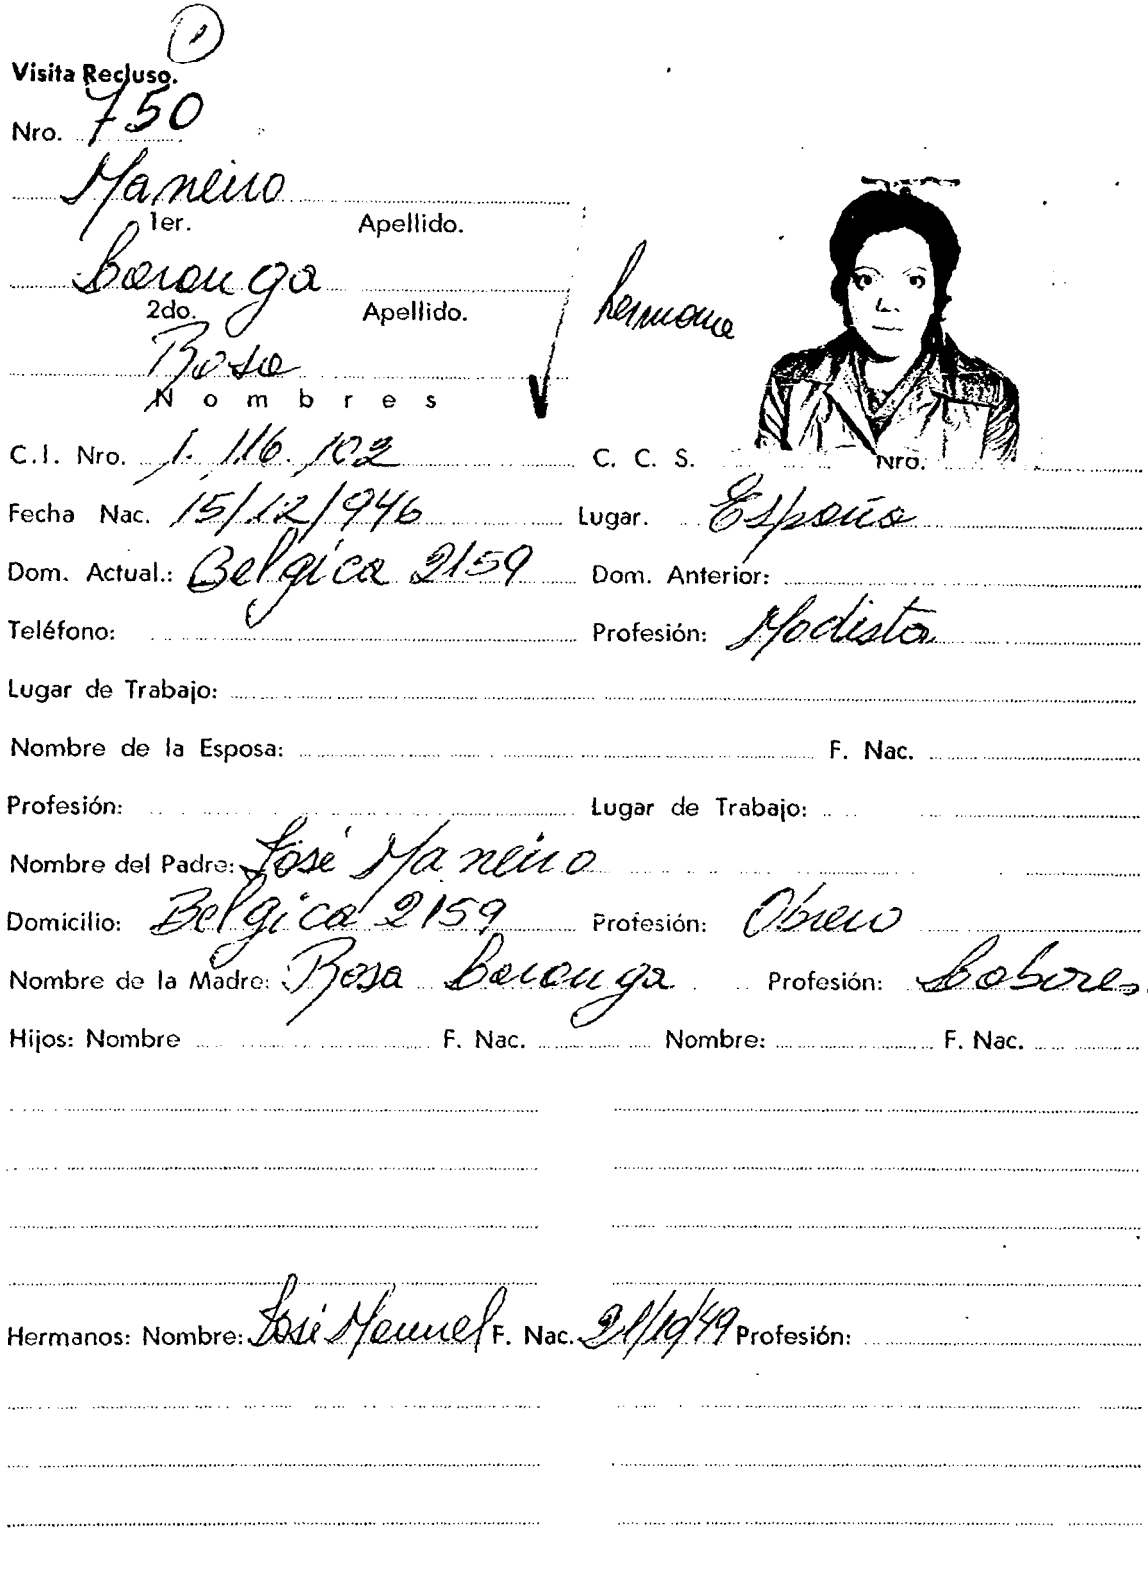 1
Visita Recluso.
Nro. 750
Maneiro
1er. Apellido.
2do. Apellido.
hermana
Rosa
Nombres
C.I. Nro. 1.116.102 C. C. S. Nro.
Fecha Nac. 15/12/946 Lugar. España
Dom. Actual.: Belgica 2159 Dom. Anterior:
Teléfono: Profesión: Modista
Lugar de Trabajo:
Nombre de la Esposa: F. Nac.
Profesión: Lugar de Trabajo:
Nombre del Padre: José Maneiro
Domicilio: Belgica 2159 Profesión: Obrero
Nombre de la Madre: Rosa Profesión: Labores
Hijos: Nombre F. Nac. Nombre: F. Nac.
Hermanos: Nombre: José Manuel F. Nac. 21/10/49 Profesión: